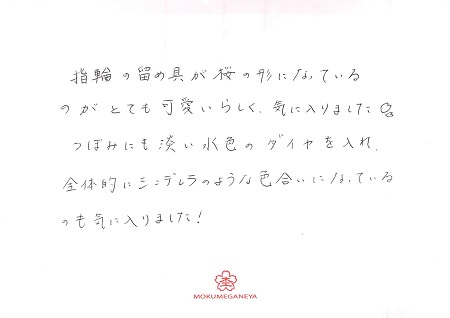 指輪の留め具が桜の形になっている
のがとても可愛いらしく、気に入りました
つぼみにも淡い水色のダイヤを入れ、
全体的にシンデレラのような色合いになっている
のも気に入りました!
杢
MOKUMEGANEYA